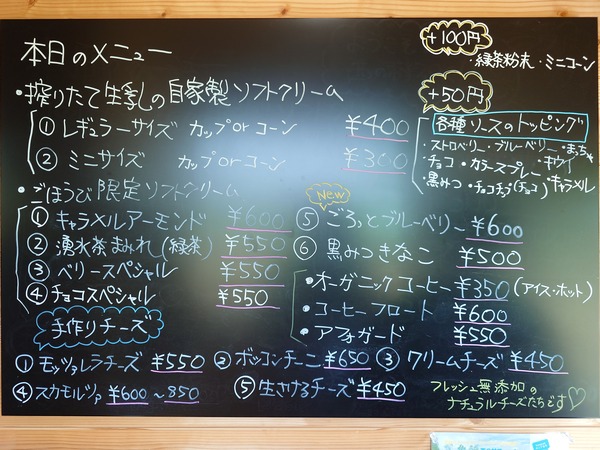 本日のメニュー
・搾りたて生乳の自家製ソフトクリーム
① レギュラーサイズ カップorコーン ¥400
② ミニサイズ カップorコーン ¥300
+100円
・緑茶粉末・ミニコーン
+50円
各種ソースのトッピング
・ストロベリー・ブルーベリー・まっちゃ
・チョコ・カラースプレー・キウイ
・黒みつ・チョコチップ(チョコ)・キャラメル
・ごほうび限定ソフトクリーム
① キャラメルアーモンド ¥600
② 湧水茶まみれ(緑茶) ¥550
③ ベリースペシャル ¥550
④ チョコスペシャル ¥550
New
⑤ ごろっとブルーベリー ¥600
⑥ 黒みつきなこ ¥500
・オーガニックコーヒー ¥350 (アイス・ホット)
・コーヒーフロート ¥600
・アフォガード ¥550
手作りチーズ
① モッツァレラチーズ ¥550 ② ボッコンチーニ ¥650 ③ クリームチーズ ¥450
④ スカモルツァ ¥600〜850 ⑤ 生さけるチーズ ¥450
フレッシュ無添加の
ナチュラルチーズたちです♡